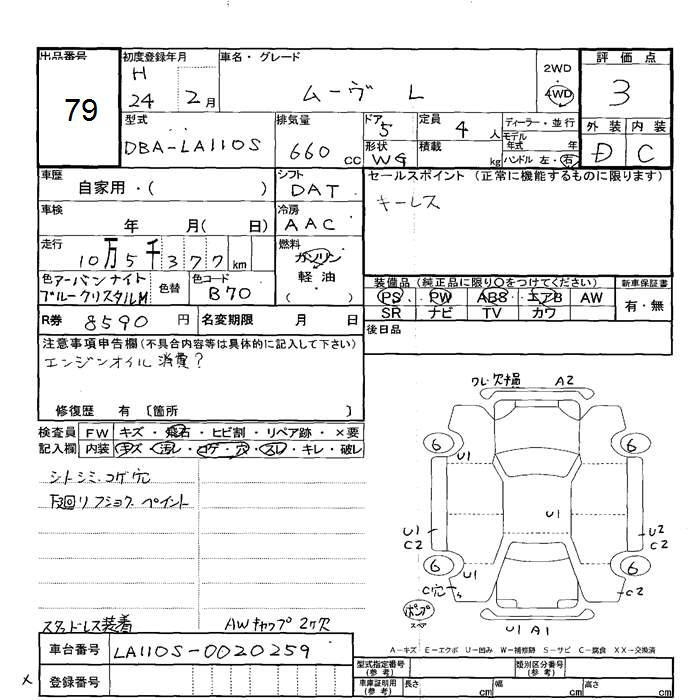 出品番号 初度登録年月 車名・グレード 2WD 評価点
79 H 24 2月 ムーヴ L 4WD 3
型式 DBA-LA110S 排気量 660 cc ドア 5 定員 4 人 ディーラー・並行 外装 内装
形状 WG 積載 kg モデル年式 年 D C
ハンドル 左・右
車歴 自家用・( ) シフト DAT セールスポイント(正常に機能するものに限ります)
車検 年 月( 日) 冷房 AAC キーレス
走行 10万5千377km 燃料 ガソリン
軽・油
( )
色 アーバンナイト 色替 色コード B70
ブルークリスタルM
装備品(純正品に限り○をつけてください) 新車保証書
PS PW ABS エアB AW 有・無
SR ナビ TV カワ
R券 8590 円 名変期限 月 日 後日品
注意事項申告欄(不具合内容等は具体的に記入して下さい)
エンジンオイル消費?
修復歴 有 〔箇所 〕
検査員 FW キズ・飛石・ヒビ割・リペア跡・×要
記入欄 内装 キズ・汚レ・コゲ・穴・スレ・キレ・破レ
シートシミ、コゲ穴
リフショク ペイント
ワレ欠損 A2
6 6
U1
U1
U1 C2
U2 C2
6 6
U1
C穴
C2
ポンプ
スペア
U1 A1
スタッドレス装着 AWキャップ2ケ欠
A-キズ E-エクボ U-凹み W-補修跡 S-サビ C-腐食 XX-交換済
車台番号 LA110S-0020259
× 登録番号
型式指定番号(参考) 類別区分番号(参考)
車庫証明用(参考) 長さ cm 幅 cm 高さ cm